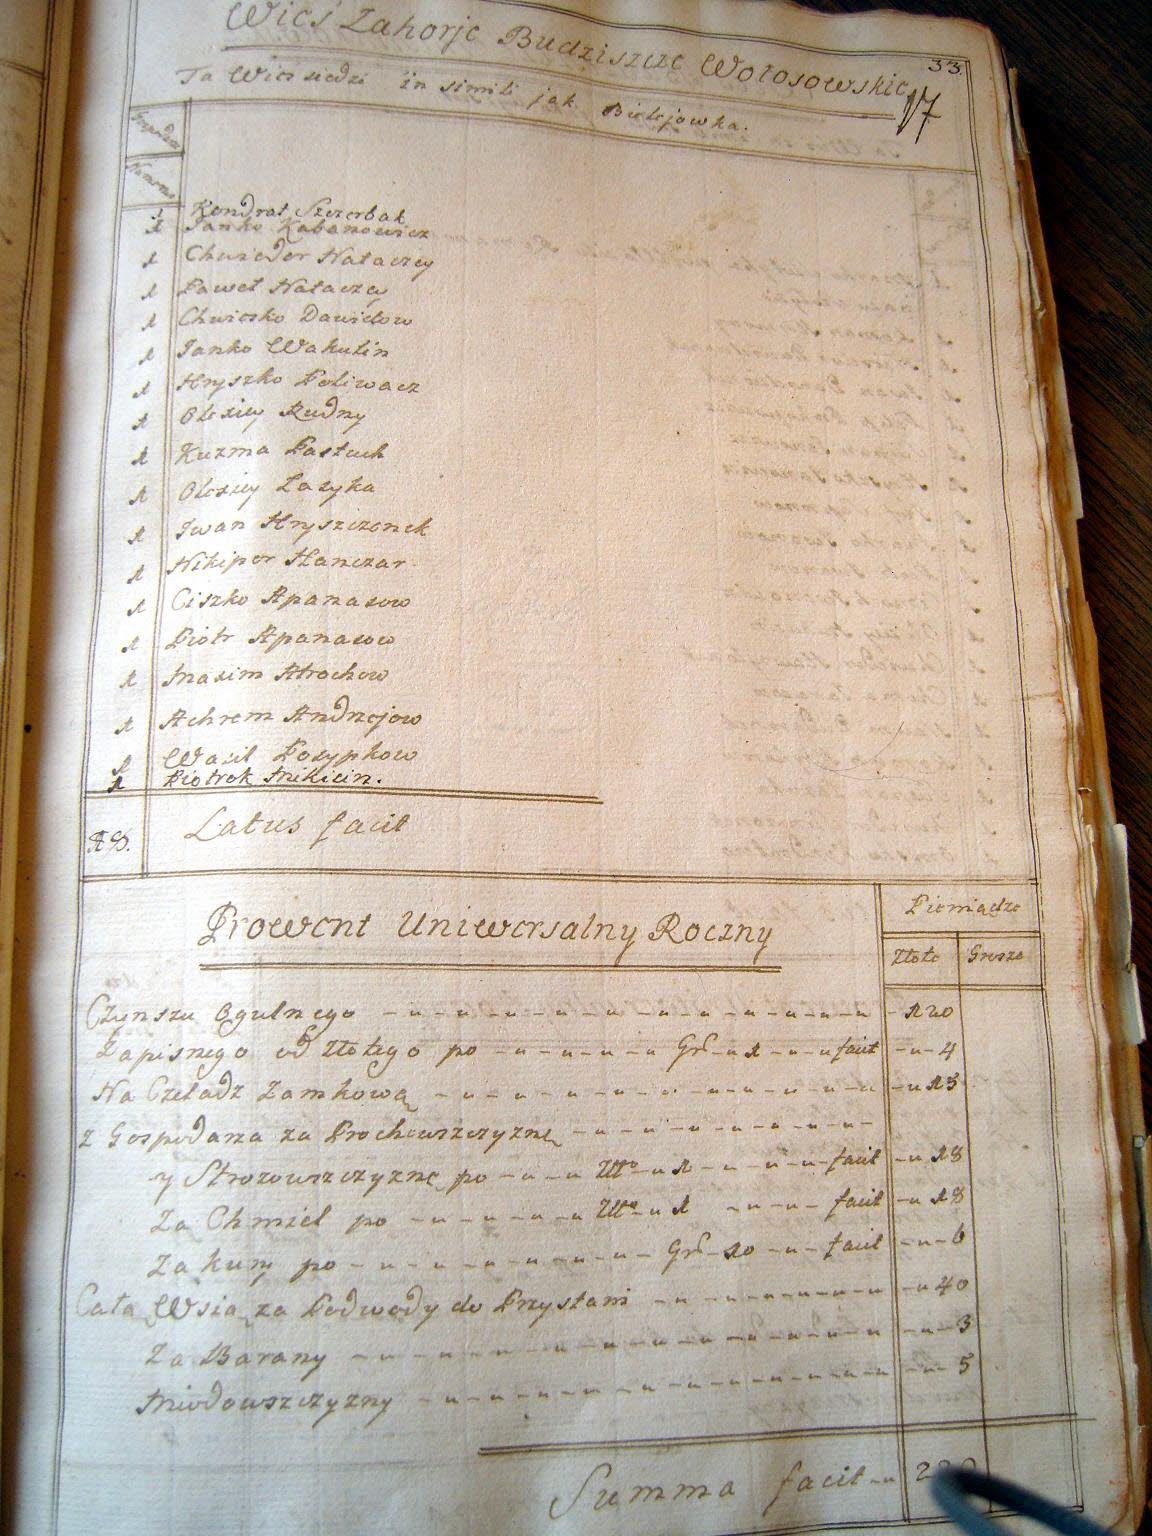 33.
Wieś Zahorje Budziszcze Wołosowskie
17
Ta Wies siedzi in simili jak Bielejowka.
Numerus
1 Kondrat Szczerbak
1 Janko Kabanowicz
1 Chwiedor Nataczey
1 Paweł Natacżą
1 Chwiesko Dawidow
1 Janko Wakulin
1 Hryszko Poliwacz
1 Olexiey Rudny
1 Kuzma Pastuch
1 Olexiey Łazyka
1 Iwan Hryszczonek
1 Nikipor Hanczar
1 Ciszko Apanasow
1 Piotr Apanasow
1 Maxim Atrochow
1 Achrem Andrzejow
1 Wasil Posypkow
1 Piotrok Mikicin.
18. Latus facit
Prowent Uniwersalny Roczny
Pieniądze
Złote Grosze
Czynszu Ogulnego 120
Zapisnego od Złotego po Gr 1 facit 4
Na Czeladz Zamkową 15
Z Gospodarza za Prochowszczyznę
y Strozowszczyznę po Złło 1 facit 18
Za Chmiel po Złło 1 facit 18
Za kury po Gr 10 facit 6
Cała Wsia za Podwody do Przystani 40
Za Barany 3
Miodowszczyzny 5
Summa facit